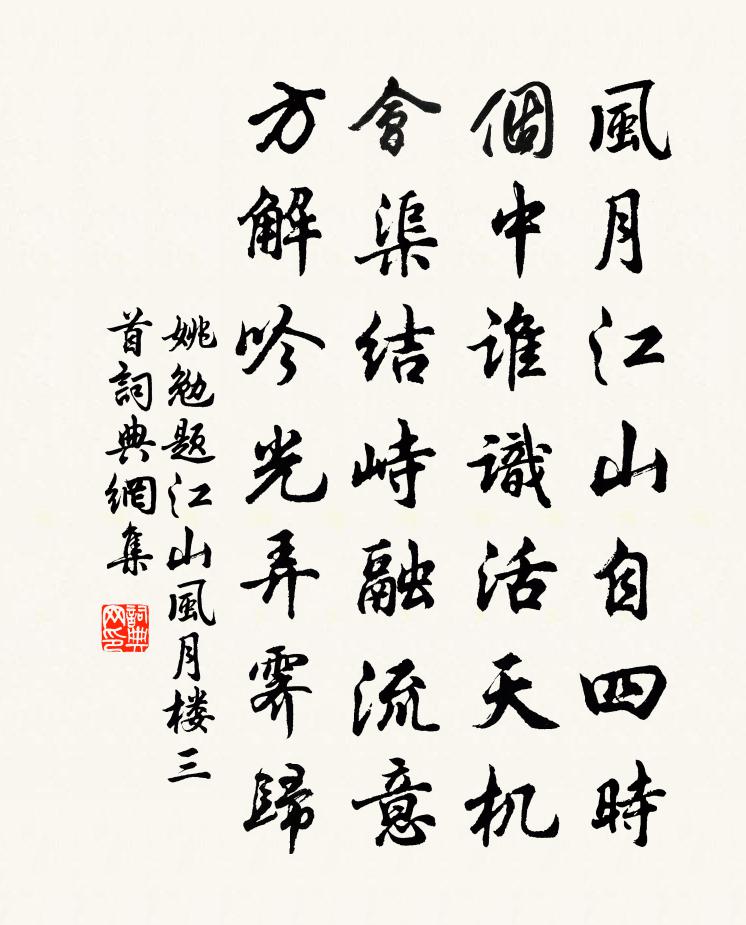 風月江山自四時
個中誰識活天机
會渠结峙融流意
方解吟光弄霽歸
姚勉题江山風月楼三
首詞典網集
詞典
网印